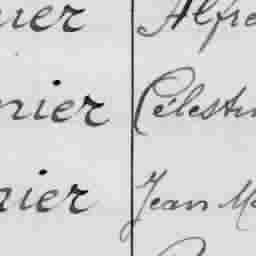 uer Alfre
nier Célestin
nier Jean Ma